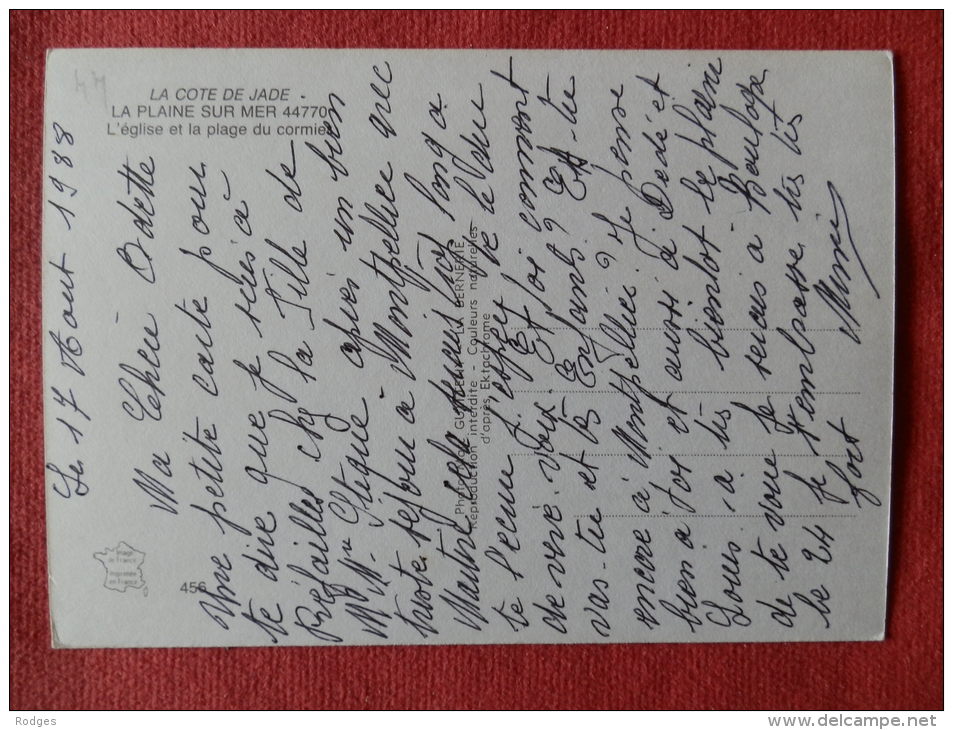 44
LA COTE DE JADE -
LA PLAINE SUR MER 44770
L'église et la plage du cormier
456
Image de France
Imprimée en France
Photographie LA BERNERIE
Reproduction interdite - Couleurs naturelles
d'après Ektachrome
Le 17 Aout 1988
Ma Chère Odette
Une petite carte pour
te dire que je suis à
Préfailles chez la Fille de
Mr Mme après un bien
triste séjour à Montpellier avec
Maurice cela long a
te j'espère que le
de vivre vous. Et toi comment
vas-tu et tes Enfants ? Es-tu
encore à Montpellier ? je pense
bien à toi et aussi à Dédé et
Louis à très bientôt le plaisir
de te voir je serais à Boulogne
le 24 je t'embrasse très très
fort Mimi
Rodges
www.delcampe.net